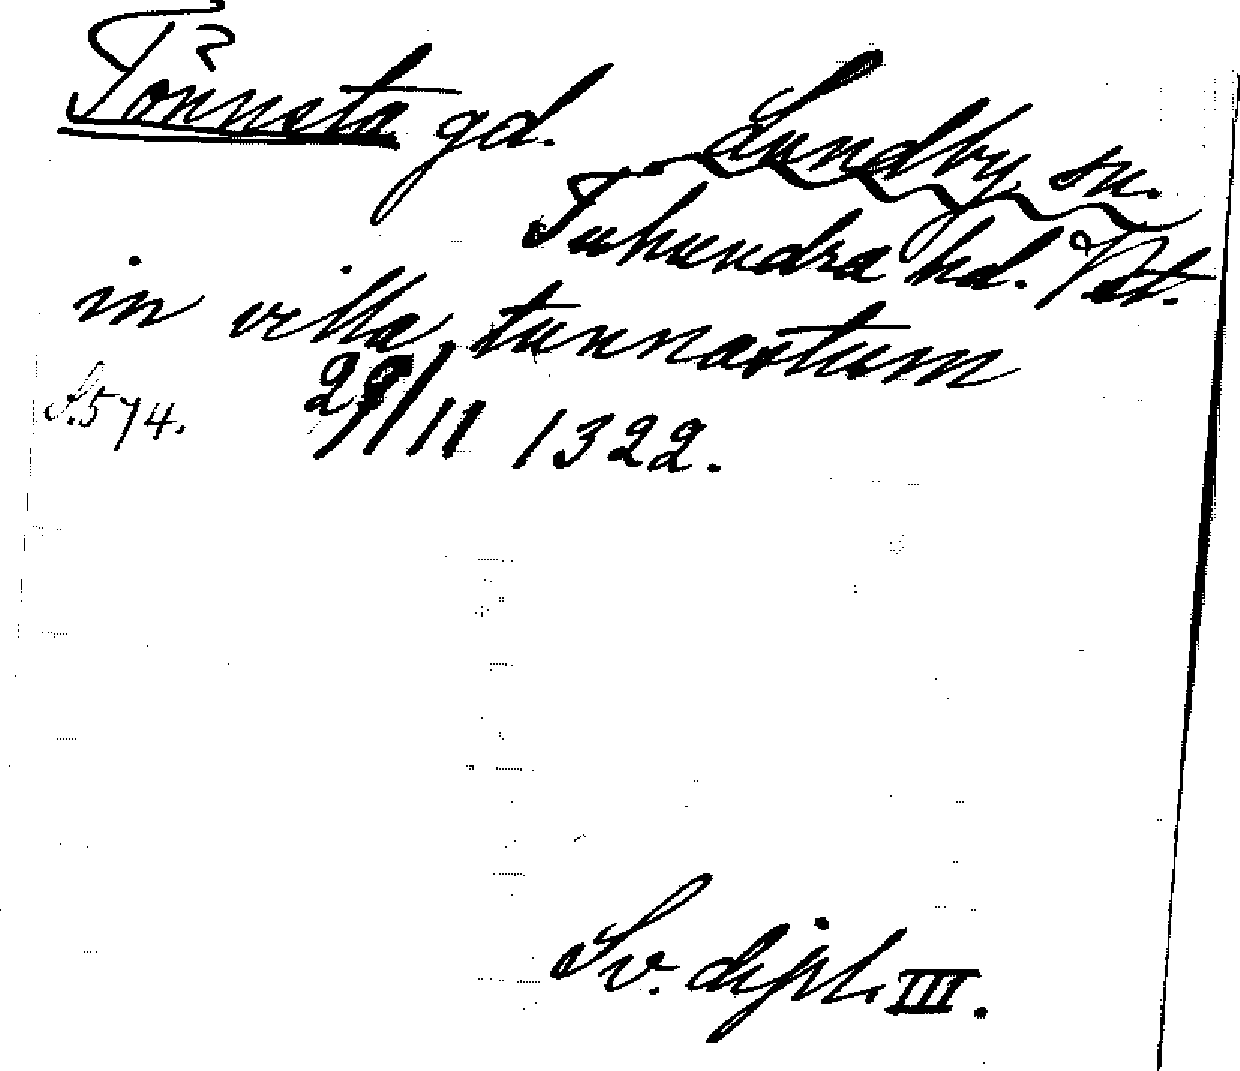 Tönnsta gd. Lundby sn.
Tuhundra hd. Vst.
in villa tunnastum
S. 574. 29/11 1322.
Sv. dipl. III.